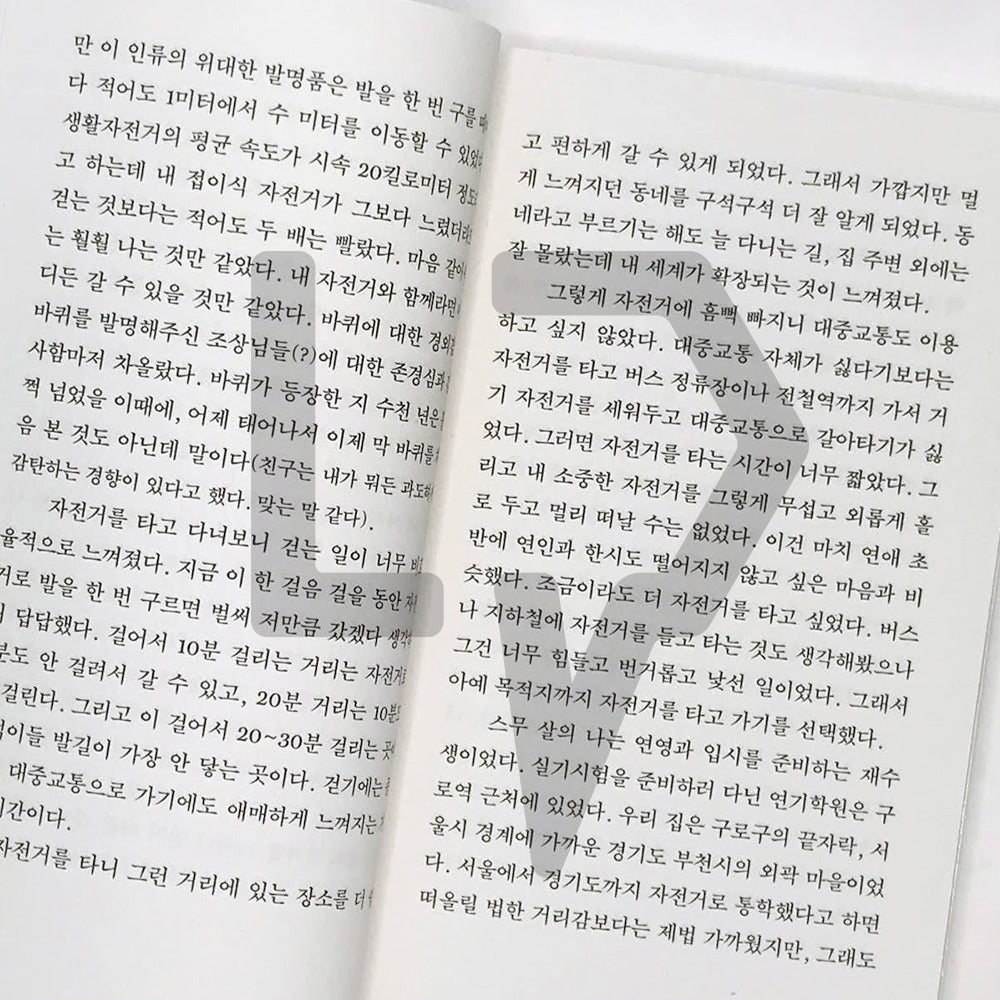 만 이 인류의 위대한 발명품은 발을 한 번 구를
다 적어도 1미터에서 수 미터를 이동할 수 있었
생활자전거의 평균 속도가 시속 20킬로미터 정도
고 하는데 내 접이식 자전거가 그보다 느렸더
걷는 것보다는 적어도 두 배는 빨랐다. 마음 같아
는 훨훨 나는 것만 같았다. 내 자전거와 함께라면
디든 갈 수 있을 것만 같았다. 바퀴에 대한 경외
바퀴를 발명해주신 조상님들(?)에 대한 존경심과
사함마저 차올랐다. 바퀴가 등장한 지 수천 년은
쩍 넘었을 이때에, 어제 태어나서 이제 막 바퀴를
음 본 것도 아닌데 말이다(친구는 내가 뭐든 과도하
감탄하는 경향이 있다고 했다. 맞는 말 같다).
자전거를 타고 다녀보니 걷는 일이 너무 비
율적으로 느껴졌다. 지금 이 한 걸음 걸을 동안
거로 발을 한 번 구르면 벌써 저만큼 갔겠다 생각
답답했다. 걸어서 10분 걸리는 거리는 자전거로
분도 안 걸려서 갈 수 있고, 20분 거리는 10분
걸린다. 그리고 이 걸어서 20~30분 걸리는
이들 발길이 가장 안 닿는 곳이다. 걷기에는
대중교통으로 가기에도 애매하게 느껴지는
시간이다.
자전거를 타니 그런 거리에 있는 장소를 더
고 편하게 갈 수 있게 되었다. 그래서 가깝지만 멀
게 느껴지던 동네를 구석구석 더 잘 알게 되었다. 동
네라고 부르기는 해도 늘 다니는 길, 집 주변 외에는
잘 몰랐는데 내 세계가 확장되는 것이 느껴졌다.
그렇게 자전거에 흠뻑 빠지니 대중교통도 이용
하고 싶지 않았다. 대중교통 자체가 싫다기보다는
자전거를 타고 버스 정류장이나 전철역까지 가서 거
기 자전거를 세워두고 대중교통으로 갈아타기가 싫
었다. 그러면 자전거를 타는 시간이 너무 짧았다. 그
리고 내 소중한 자전거를 그렇게 무섭고 외롭게 홀
로 두고 멀리 떠날 수는 없었다. 이건 마치 연애 초
반에 연인과 한시도 떨어지지 않고 싶은 마음과 비
슷했다. 조금이라도 더 자전거를 타고 싶었다. 버스
나 지하철에 자전거를 들고 타는 것도 생각해봤으나
그건 너무 힘들고 번거롭고 낯선 일이었다. 그래서
아예 목적지까지 자전거를 타고 가기를 선택했다.
스무 살의 나는 연영과 입시를 준비하는 재수
생이었다. 실기시험을 준비하러 다닌 연기학원은 구
로역 근처에 있었다. 우리 집은 구로구의 끝자락, 서
울시 경계에 가까운 경기도 부천시의 외곽 마을이었
다. 서울에서 경기도까지 자전거로 통학했다고 하면
떠올릴 법한 거리감보다는 제법 가까웠지만, 그래도